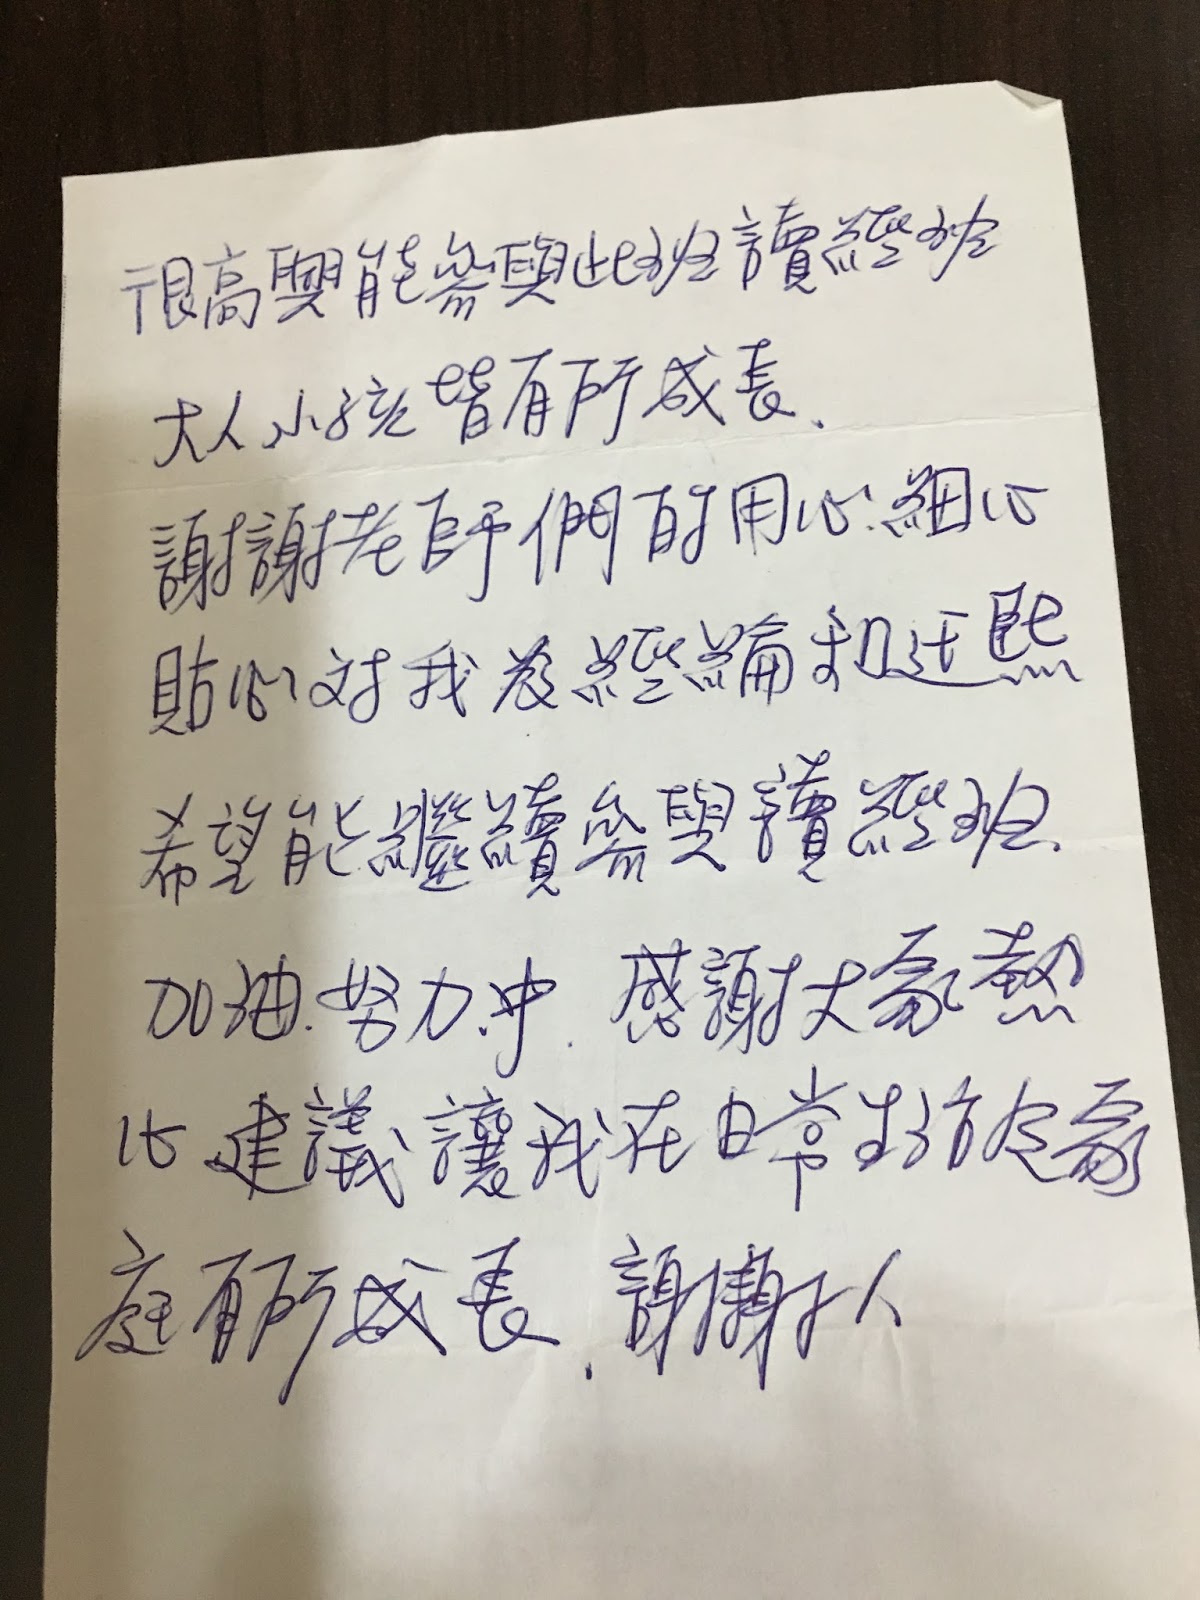 很高興能參與此班讀經班
大人小孩皆有所成長.
謝謝老師們的用心.細心
貼心對我及經綸和廷熙
希望能繼續參與讀經班.
加油.努力中.感謝大家熱
心建議讓我在日常生活及家
庭有所成長.謝謝